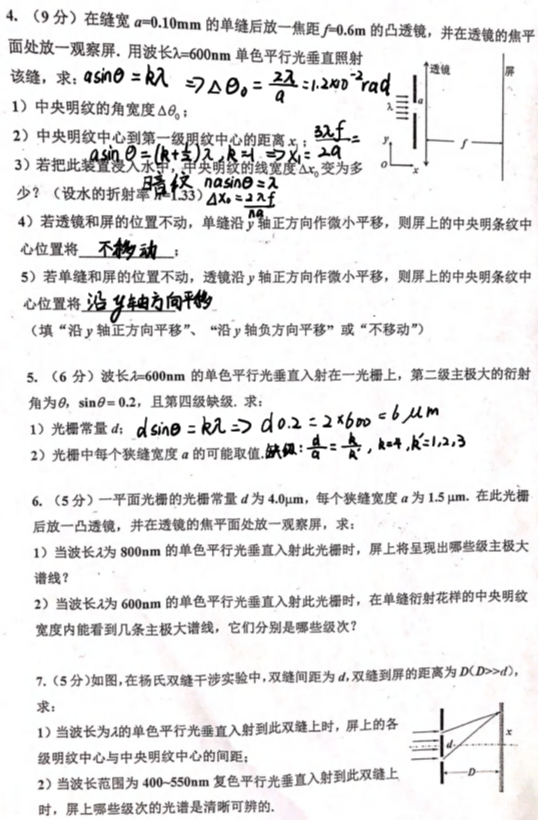 4. （9 分）在缝宽 a=0.10mm 的单缝后放一焦距 f=0.6m 的凸透镜，并在透镜的焦平
面处放一观察屏. 用波长λ=600nm 单色平行光垂直照射
该缝，求：asinθ = kλ ⇒△θ₀ = 2λ/a = 1.2×10⁻² rad
透镜
屏
λ
a
f
y
o
x
1）中央明纹的角宽度Δθ₀；
2）中央明纹中心到第一级明纹中心的距离 x₁；3λf/2a =
asinθ = (k+½)λ, k=1 ⇒x₁ =
3）若把此装置浸入水中，中央明纹的线宽度Δx₀变为多
暗纹 nasinθ = λ
少？（设水的折射率 n=1.33）△x₀ = 2λf/na
4）若透镜和屏的位置不动，单缝沿 y 轴正方向作微小平移，则屏上的中央明条纹中
心位置将 不移动 ；
5）若单缝和屏的位置不动，透镜沿 y 轴正方向作微小平移，则屏上的中央明条纹中
心位置将 沿y轴方向平移
（填“沿 y 轴正方向平移”、“沿 y 轴负方向平移”或“不移动”）
5. （6 分）波长λ=600nm 的单色平行光垂直入射在一光栅上，第二级主极大的衍射
角为θ，sinθ= 0.2，且第四级缺级. 求：
1）光栅常量 d；dsinθ = kλ ⇒ d0.2 = 2×600 = 6μm
2）光栅中每个狭缝宽度 a 的可能取值. 缺级：d/a = k/k′, k=4, k′=1,2,3
6. （5 分）一平面光栅的光栅常量 d 为 4.0μm，每个狭缝宽度 a 为 1.5 μm. 在此光栅
后放一凸透镜，并在透镜的焦平面处放一观察屏，求：
1）当波长λ为 800nm 的单色平行光垂直入射此光栅时，屏上将呈现出哪些级主极大
谱线？
2）当波长λ为 600nm 的单色平行光垂直入射此光栅时，在单缝衍射花样的中央明纹
宽度内能看到几条主极大谱线，它们分别是哪些级次？
7.（5 分）如图,在杨氏双缝干涉实验中,双缝间距为 d,双缝到屏的距离为 D(D>>d)，
求：
1）当波长为λ的单色平行光垂直入射到此双缝上时，屏上的各
级明纹中心与中央明纹中心的间距；
2）当波长范围为 400~550nm 复色平行光垂直入射到此双缝上
时，屏上哪些级次的光谱是清晰可辨的.
d
x
D